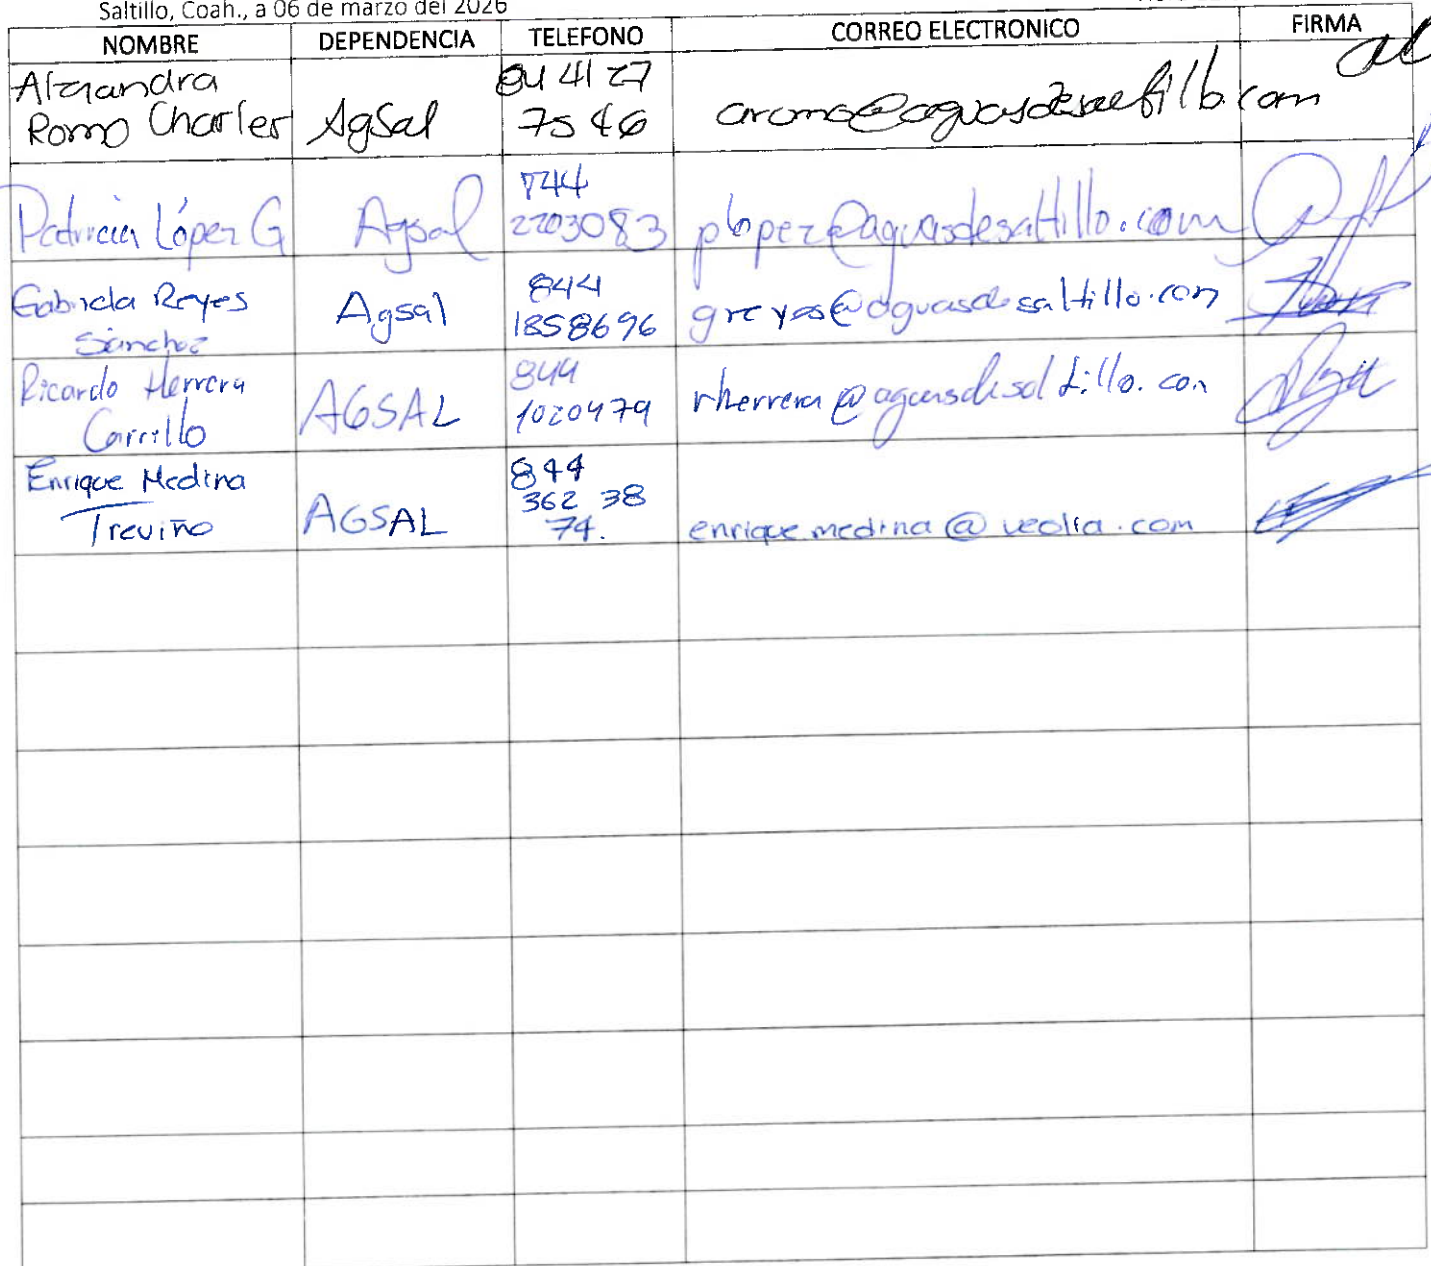 Saltillo, Coah., a 06 de marzo del 2026
NOMBRE DEPENDENCIA TELEFONO CORREO ELECTRONICO FIRMA
Alejandra
Romo Charles AgSal 844 127
7546 aromo@aguasdesaltillo.com
Patricia López G Agsal 744
2203083 plopez@aguasdesaltillo.com
Gabriela Reyes
Sánchez Agsal 844
1858696 greyes@aguasdesaltillo.com
Ricardo Herrera
Carrillo AGSAL 844
1020479 rherrera@aguasdesaltillo.com
Enrique Medina
Treviño AGSAL 844
362 38
74. enrique.medina@veolia.com